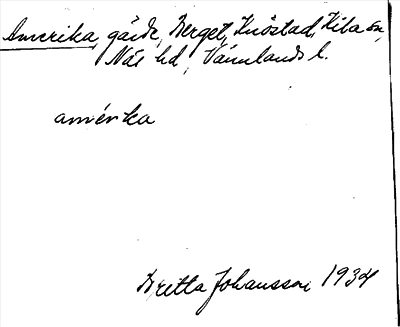 Amerika, gärde, Berget, Knöstad, Kila sn,
Näs hd, Värmlands l.
amérka
Britta Johansson 1934